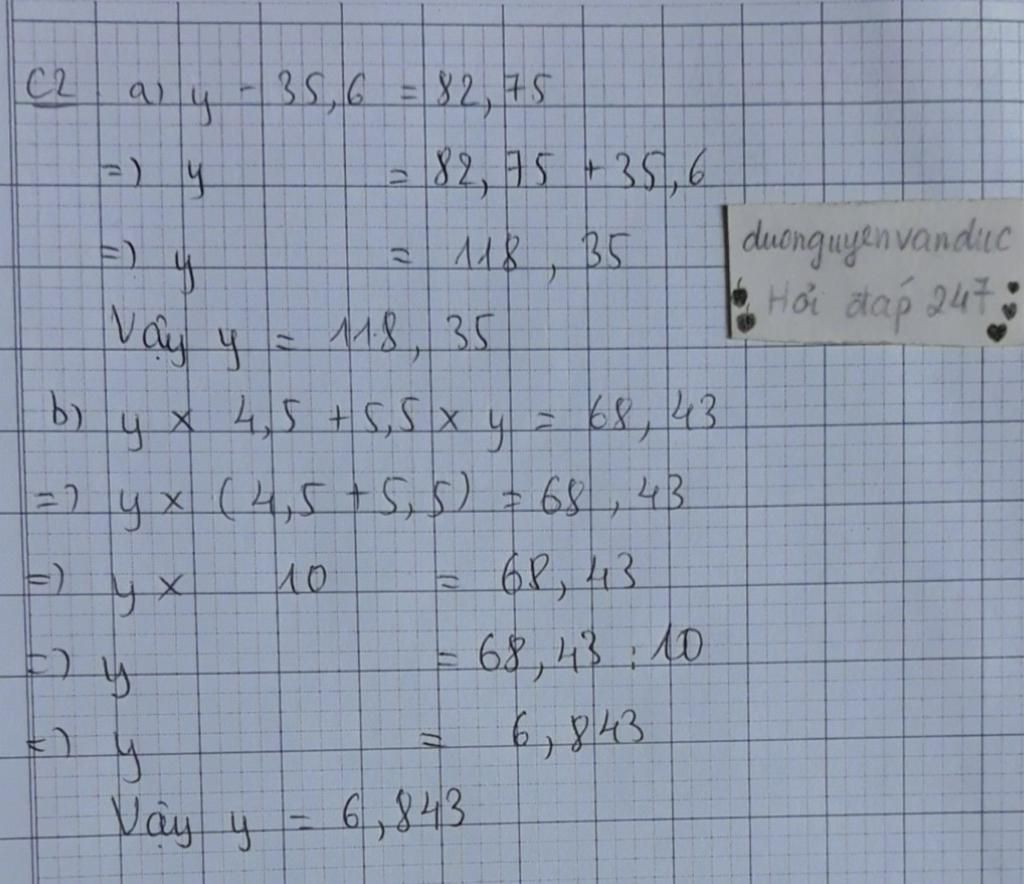 C2 a) y - 35,6 = 82,75
=) y = 82,75 + 35,6
=) y = 118,35
Vậy y = 118,35
duonguyenvanduc
Hỏi đáp 247
b) y x 4,5 + 5,5 x y = 68,43
=) y x (4,5 + 5,5) = 68,43
=) y x 10 = 68,43
=) y = 68,43 : 10
=) y = 6,843
Vậy y = 6,843